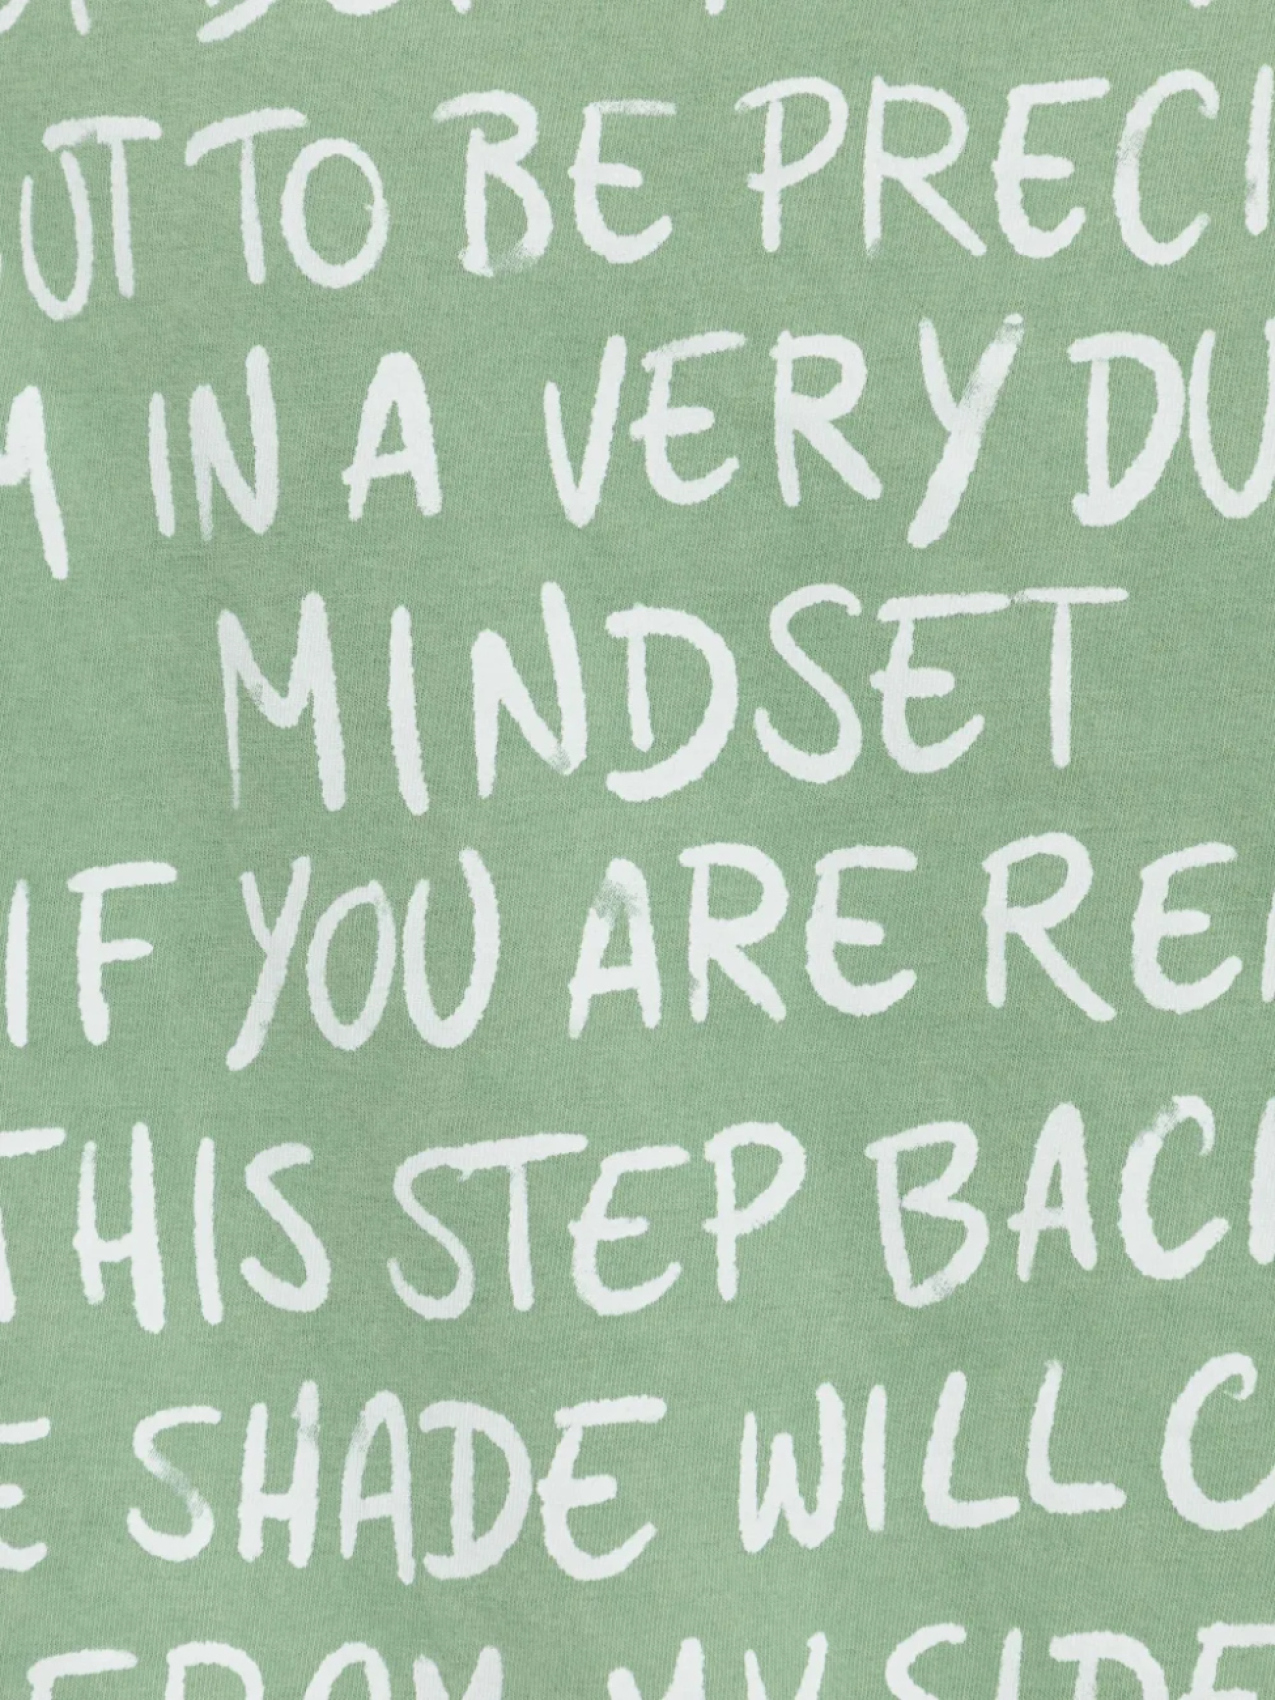 UT TO BE PRECI
M IN A VERY DU
MINDSET
IF YOU ARE RE
THIS STEP BACK
E SHADE WILL C
FROM MY SIDE